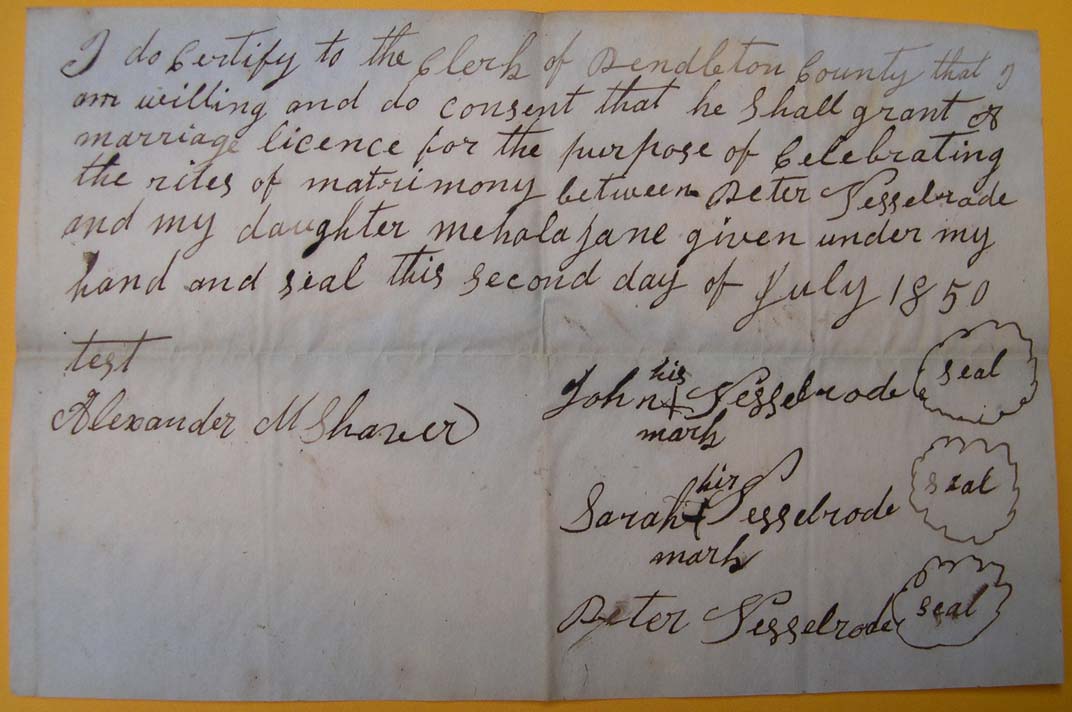 I do Certify to the Clerk of Pendleton County that I
am willing and do consent that he Shall grant
marriage licence for the purpose of Celebrating
the rites of matrimony between Peter Nesselrode
and my daughter mehala Jane given under my
hand and seal this second day of July 1850
test
Alexander M Shaver
his
John + Nesselrode seal
mark
hir
Sarah + Nesselrode seal
mark
Peter Nesselrode seal